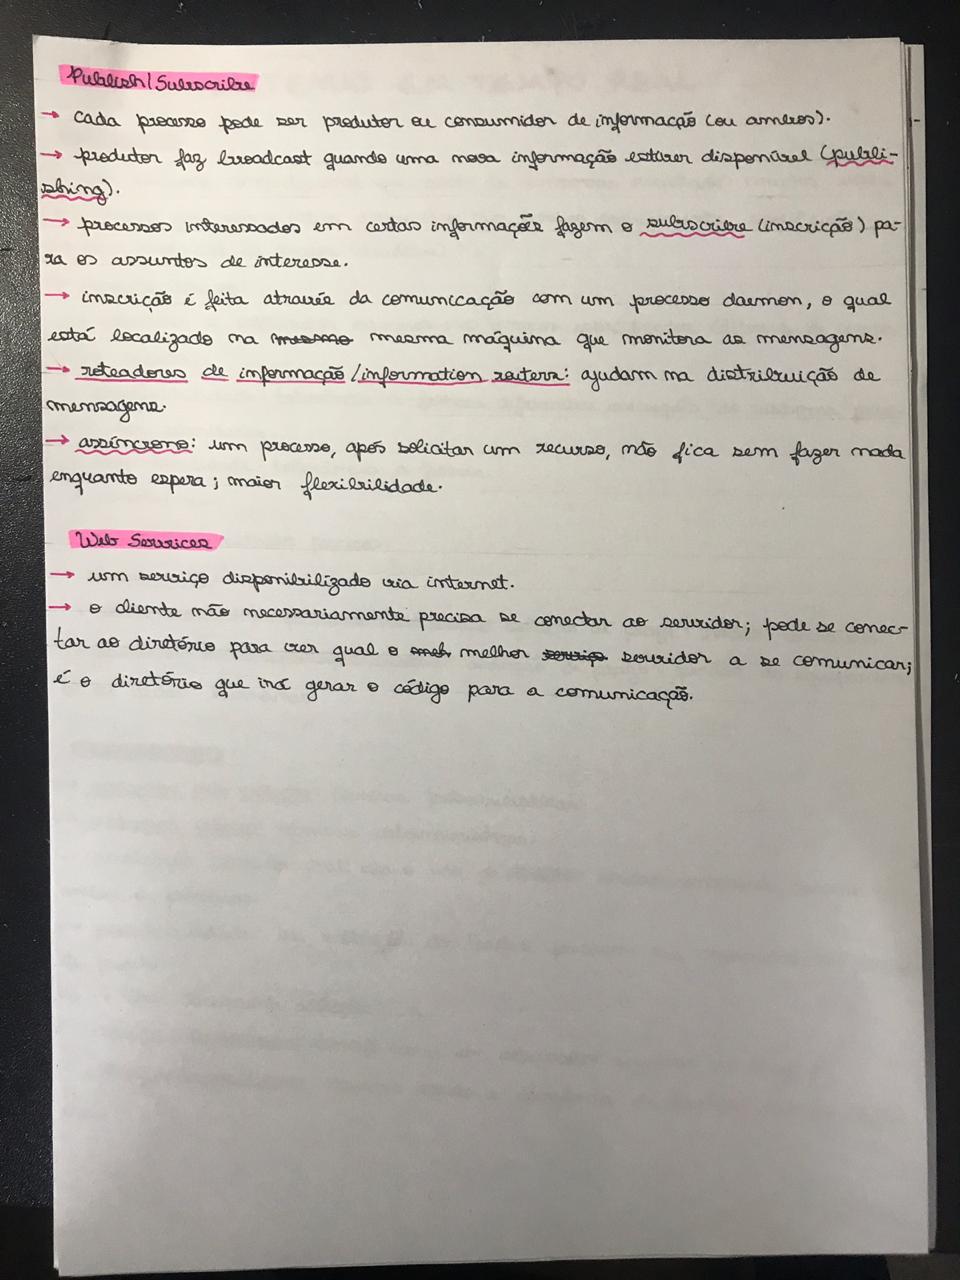 Publish/Subscribe
→ cada processo pode ser produtor ou consumidor de informação (ou ambos).
→ produtor faz broadcast quando uma nova informação estiver disponível (publi-
shing).
→ processos interessados em certas informações fazem o subscribe (inscrição) pa-
ra os assuntos de interesse.
→ inscrição é feita através da comunicação com um processo daemon, o qual
está localizado na mesmo mesma máquina que monitora as mensagens.
→ roteadores de informação/information routers: ajudam na distribuição de
mensagens.
→ assíncrono: um processo, após solicitar um recurso, não fica sem fazer nada
enquanto espera; maior flexibilidade.
Web Services
→ um serviço disponibilizado via internet.
→ o cliente não necessariamente precisa se conectar ao servidor; pode se conec-
tar ao diretório para ver qual o melhor serviço servidor a se comunicar;
é o diretório que irá gerar o código para a comunicação.